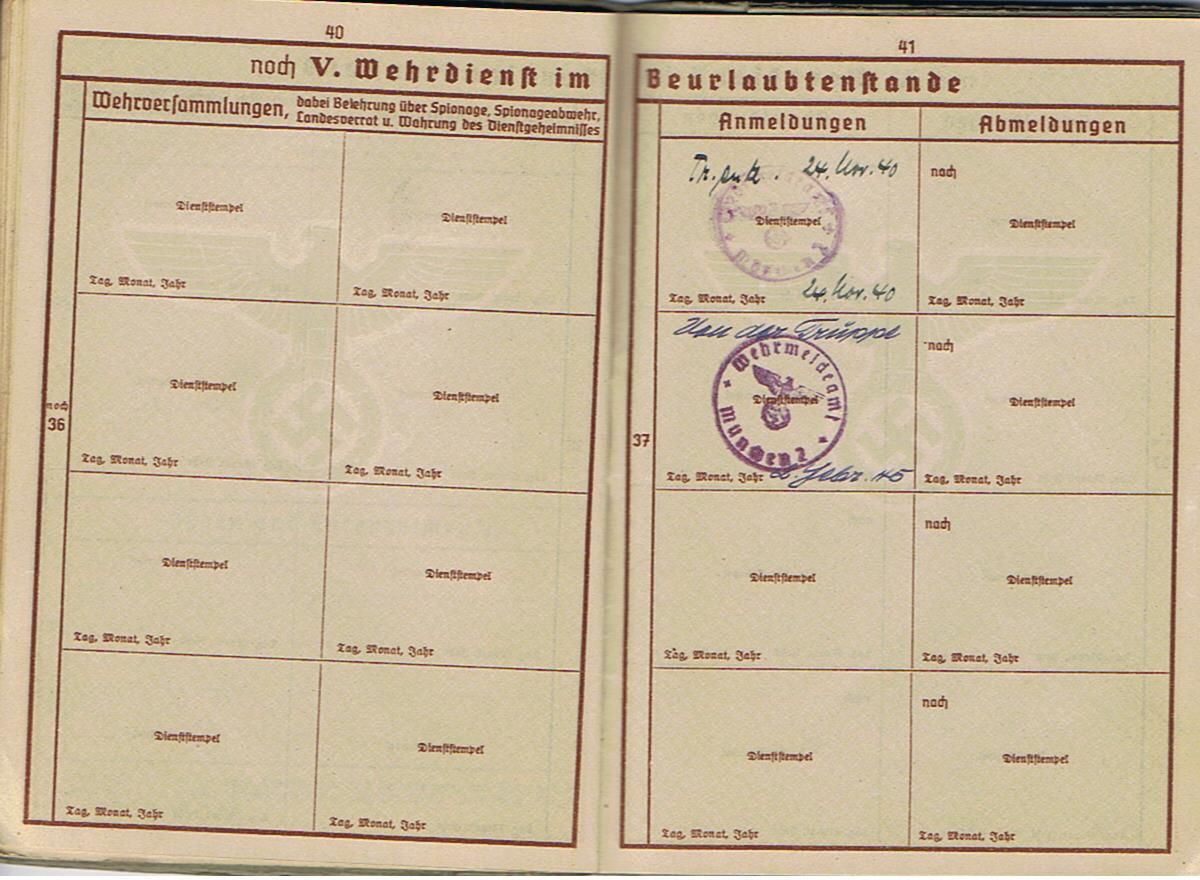 40
noch V. Wehrdienst im
Wehrversammlungen, dabei Belehrung über Spionage, Spionageabwehr,
Landesverrat u. Wahrung des Dienstgeheimnisses
Dienststempel
Dienststempel
Tag, Monat, Jahr
Tag, Monat, Jahr
noch
36
Dienststempel
Dienststempel
Tag, Monat, Jahr
Tag, Monat, Jahr
Dienststempel
Dienststempel
Tag, Monat, Jahr
Tag, Monat, Jahr
Dienststempel
Dienststempel
Tag, Monat, Jahr
Tag, Monat, Jahr
41
Beurlaubtenstande
Anmeldungen
Abmeldungen
24. Nov. 40
nach
Dienststempel
München 2
Dienststempel
Tag, Monat, Jahr 24. Nov. 40
Tag, Monat, Jahr
37
Von der Truppe
nach
Wehrmeldeamt
Dienststempel
München 2
Dienststempel
Tag, Monat, Jahr 2. Febr. 45
Tag, Monat, Jahr
nach
Dienststempel
Dienststempel
Tag, Monat, Jahr
Tag, Monat, Jahr
nach
Dienststempel
Dienststempel
Tag, Monat, Jahr
Tag, Monat, Jahr